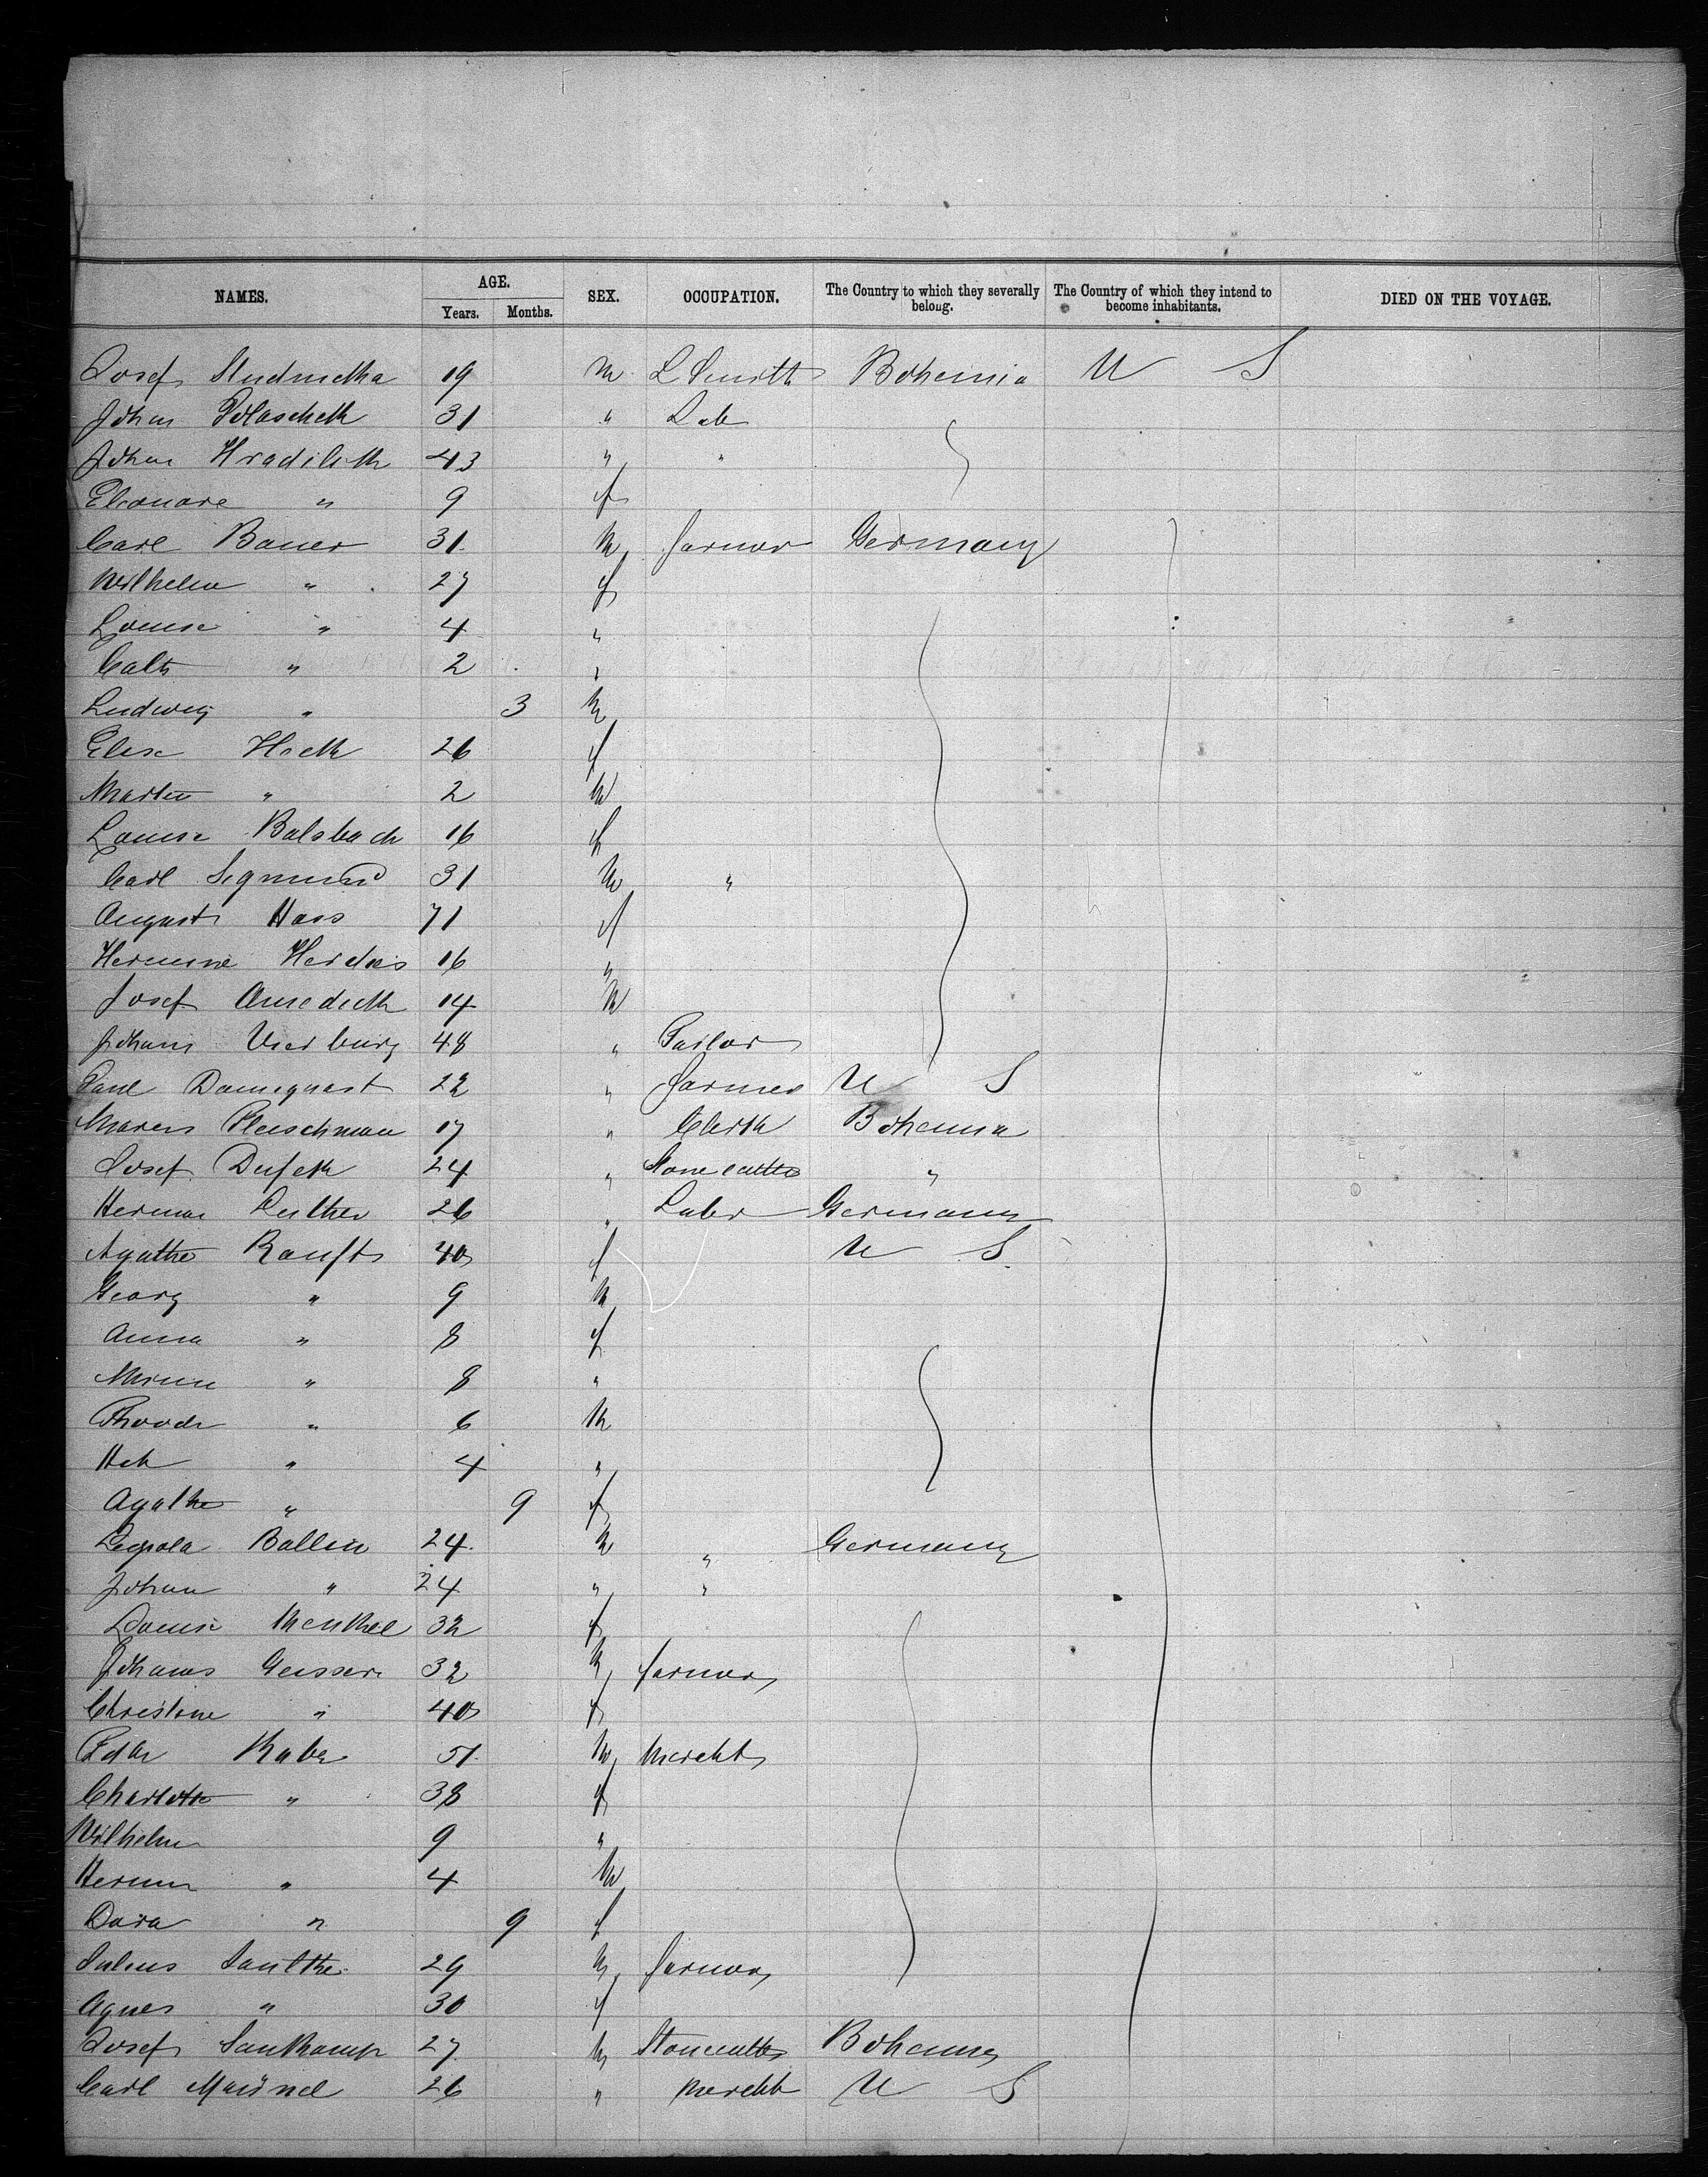 NAMES. AGE. SEX. OCCUPATION. The Country to which they severally belong. The Country of which they intend to become inhabitants. DIED ON THE VOYAGE.
Years. Months.
Josef 19 m L Smith Bohemia U S
Johan Polaschek 31 " Lab
Johan Hradilek 43 " "
Eleonore " 9 f
Carl Bauer 31 m farmer Germany
Wilhelm " 27 f
Louise " 4 "
Cath " 2 "
Ludwig " 3 m
Elise Heck 26 f
Martin " 2 m
Louise Balsbach 16 f
Carl Sigmund 31 m "
August Hass 71 f
Hermine Herdes 16 "
Josef 14 m
Johann 48 " Tailor
Paul Damquast 22 " farmer U S
Marcus Fleischman 17 " Clerk Bohemia
Josef Dufek 24 " Stonecutter "
Herman Luther 26 " Labr Germany
Agathe Ranft 40 f U S
Georg " 9 m
Anna " 8 f
" 8 "
" 6 m
" 4 "
Agathe " 9 f
Ballin 24 m " Germany
Johan " 24 " "
Louise Menkel 32 f
Johans Geisser 32 m farmer
Christine " 40 f
51 m Mercht
Charlotte " 38 f
Wilhelm 9 "
Herman " 4 m
Dora " 9 f
Julius 29 m farmer
Agnes " 30 f
Josef Sankamp 27 m Stonecutter Bohemia
Carl 26 " Mercht U S